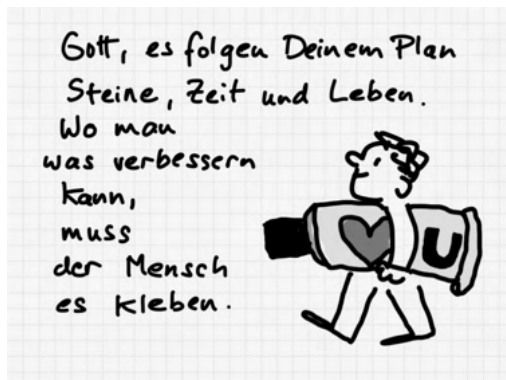 Gott, es folgen Deinem Plan
Steine, Zeit und Leben.
Wo man
was verbessern
kann,
muss
der Mensch
es kleben.
U